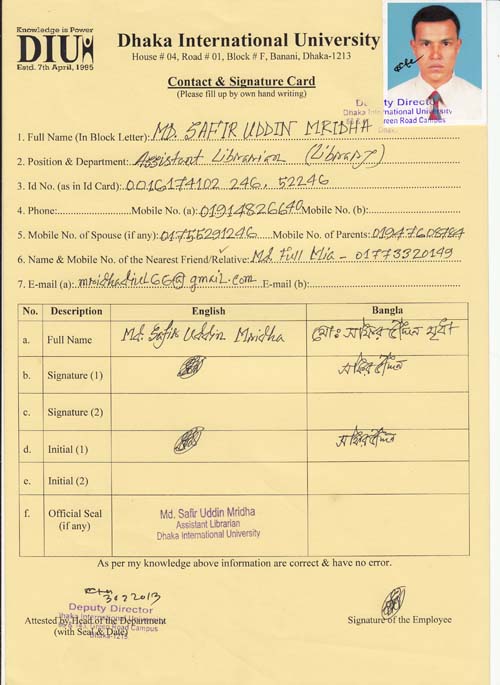 Knowledge is Power
DIU
Estd. 7th April, 1995
Dhaka International University
House # 04, Road # 01, Block # F, Banani, Dhaka-1213
Contact & Signature Card
(Please fill up by own hand writing)
Deputy Director
Dhaka International University
Green Road Campus
1. Full Name (In Block Letter): MD. SAFIR UDDIN MRIDHA
2. Position & Department: Assistant Librarian (Library)
3. Id No. (as in Id Card): 0016174102 246, 52246
4. Phone: Mobile No. (a): 01914826640 Mobile No. (b):
5. Mobile No. of Spouse (if any): 01755291246 Mobile No. of Parents: 01947608784
6. Name & Mobile No. of the Nearest Friend/Relative: Md. Full Mia - 01773320149
7. E-mail (a): @gmail.com E-mail (b):
No. Description English Bangla
a. Full Name Md. Safir Uddin Mridha মোঃ সাফির উদ্দিন মৃধা
b. Signature (1) সাফির উদ্দিন
c. Signature (2)
d. Initial (1) সাফির উদ্দিন
e. Initial (2)
f. Official Seal (if any) Md. Safir Uddin Mridha
Assistant Librarian
Dhaka International University
As per my knowledge above information are correct & have no error.
2013
Deputy Director
Dhaka International University
Green Road Campus
Dhaka-1215.
Attested by Head of the Department
(with Seal & Date)
Signature of the Employee